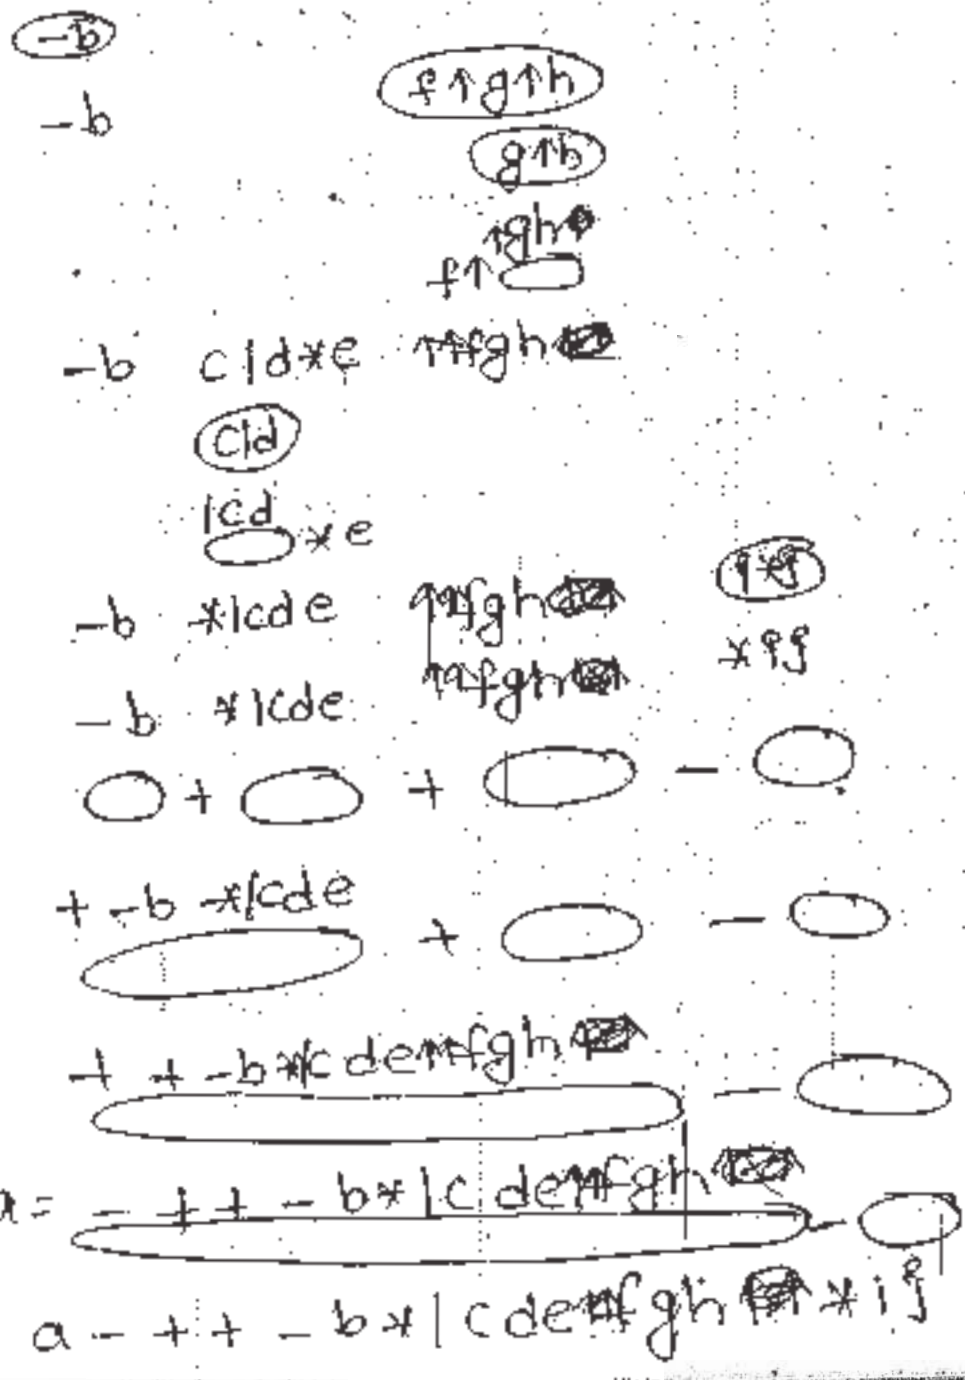 -b
f↑g↑h
-b
g↑h
↑gh
f↑
-b c/d*e ↑↑fgh
c/d
/cd
*e
i*j
-b */cde ↑↑fgh
*ij
-b */cde ↑↑fgh
+ + -
+ -b */cde
+ -
+ + -b*/cde↑↑fgh
-
a= - + + -b*/cde↑↑fgh
-
a - + + - b*/cde↑↑fgh *ij